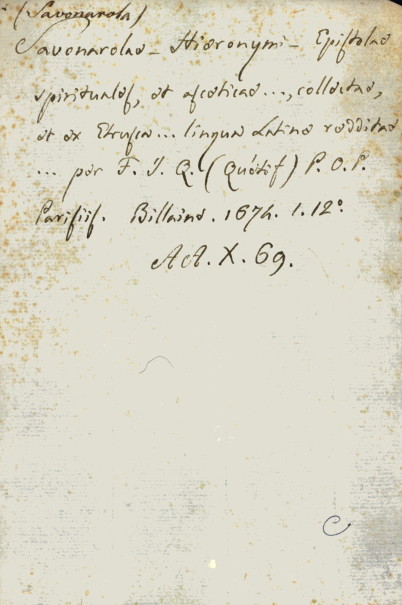 (Savonarola)
Savonarolae - Hieronymi - Epistolae
spirituales, et asceticae..., collectae,
et ex Etrusca... lingua Latine redditae
... per F. J. Q. (Quétif) P. O. P.
Parisiis. Billaine. 1674. 1. 12°.
AA. X. 69.
C